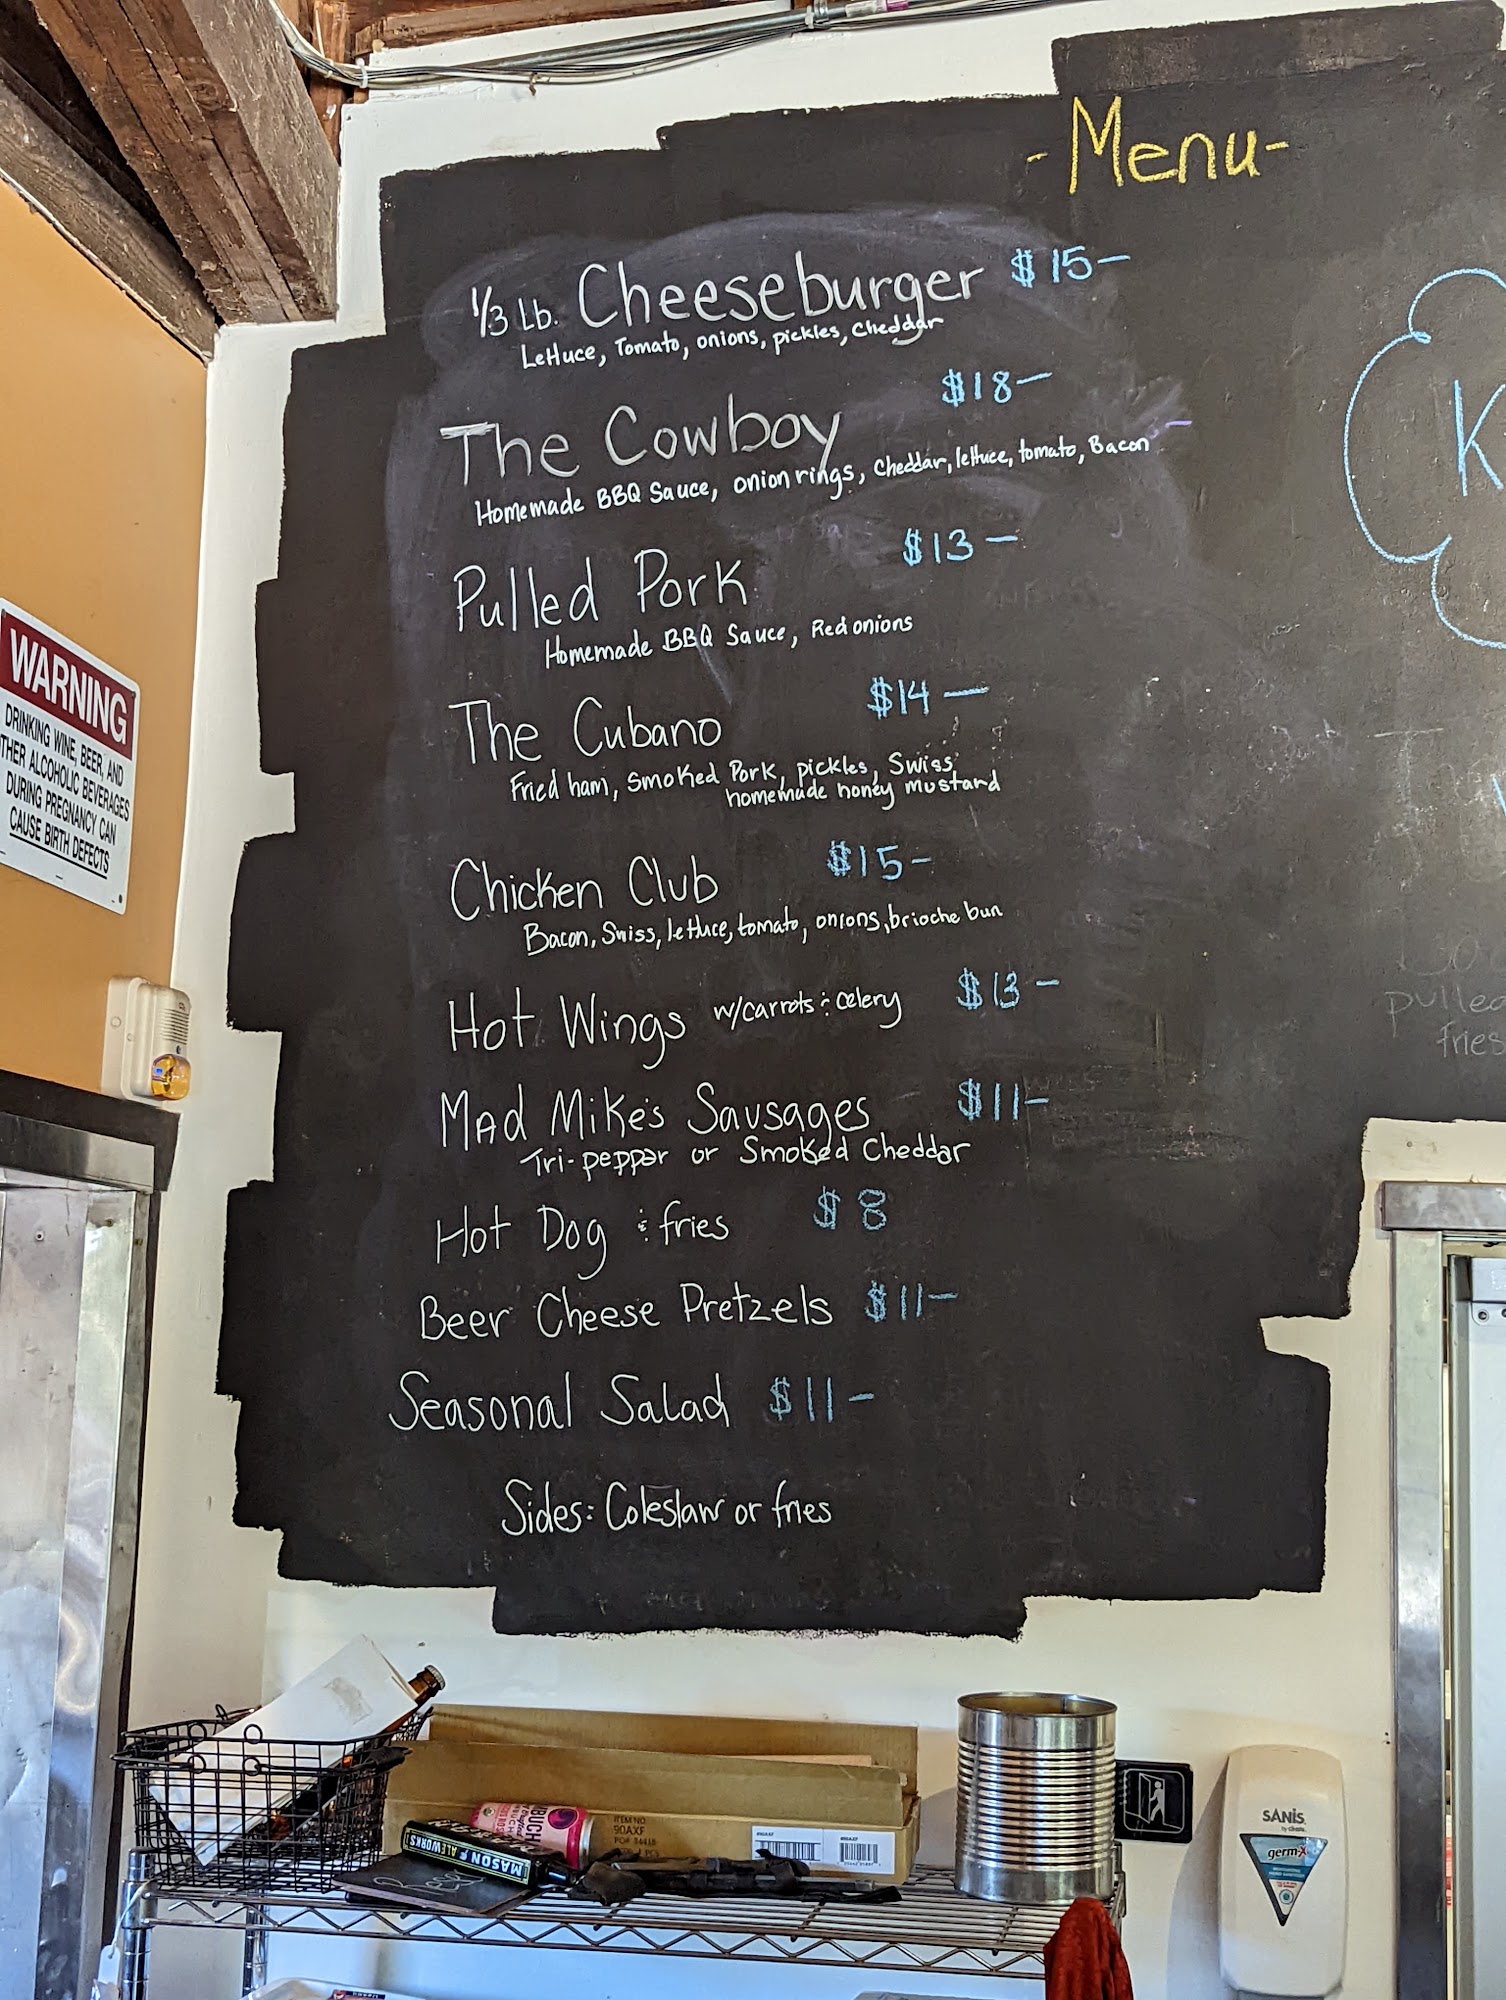 -Menu-
1/3 Lb. Cheeseburger $15-
Lettuce, Tomato, onions, pickles, cheddar
The Cowboy $18-
Homemade BBQ Sauce, onion rings, cheddar, lettuce, tomato, Bacon
Pulled Pork $13-
Homemade BBQ Sauce, Red onions
The Cubano $14-
Fried ham, Smoked Pork, pickles, Swiss,
homemade honey mustard
Chicken Club $15-
Bacon, Swiss, lettuce, tomato, onions, brioche bun
Hot Wings w/carrots & celery $13-
Mad Mike's Sausages $11-
Tri-pepper or Smoked Cheddar
Hot Dog & fries $8
Beer Cheese Pretzels $11-
Seasonal Salad $11-
Sides: Coleslaw or fries
K
pulled
fries
WARNING
DRINKING WINE, BEER, AND
OTHER ALCOHOLIC BEVERAGES
DURING PREGNANCY CAN
CAUSE BIRTH DEFECTS
MASON ALEWORKS
ITEM NO
90AXF
SANIS
germ-x